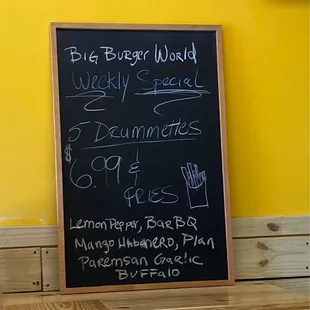 Big Burger World
Weekly Special
5 Drummettes
$6.99 &
FRIES
Lemon Pepper, BarBQ
Mango Habanero, Plan
Paremsan Garlic
Buffalo